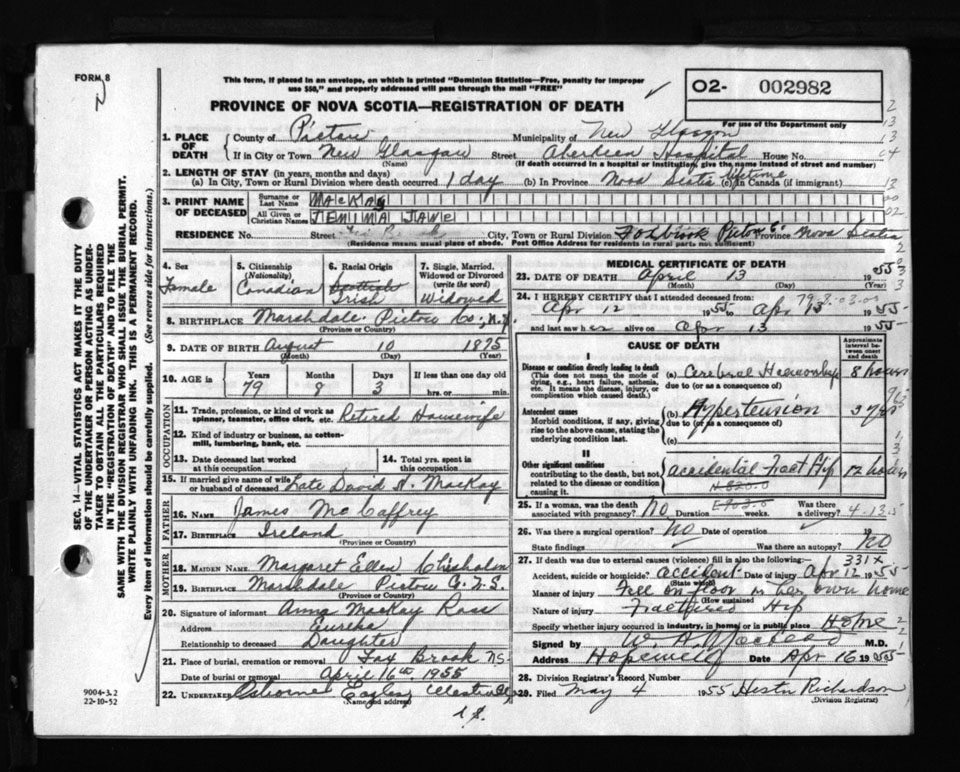 FORM 8
This form, if placed in an envelope, on which is printed "Dominion Statistics—Free, penalty for improper
use $50," and properly addressed will pass through the mail "FREE"
PROVINCE OF NOVA SCOTIA—REGISTRATION OF DEATH
02- 002982
For use of the Department only
1. PLACE OF DEATH
County of Pictou Municipality of New Glasgow
If in City or Town New Glasgow (Name) Street Aberdeen Hospital House No.
(If death occurred in a hospital or institution, give the name instead of street and number)
2. LENGTH OF STAY (in years, months and days)
(a) In City, Town or Rural Division where death occurred 1 day (b) In Province Nova Scotia (c) In Canada (if immigrant) lifetime
3. PRINT NAME OF DECEASED
Surname or Last Name MACKAY
All Given or Christian Names JEMIMA JANE
RESIDENCE No. Street City, Town or Rural Division Foxbrook Pictou Province Nova Scotia
(Residence means usual place of abode. Post Office Address for residents in rural parts not sufficient)
4. Sex Female
5. Citizenship (Nationality) Canadian
6. Racial Origin Scottish Irish
7. Single, Married, Widowed or Divorced (write the word) Widowed
8. BIRTHPLACE Marshdale Pictou Co; N.S.
(Province or Country)
9. DATE OF BIRTH August 10 1875
(Month) (Day) (Year)
10. AGE in Years 79 Months 8 Days 3 If less than one day old hrs. or min.
OCCUPATION
11. Trade, profession, or kind of work as spinner, teamster, office clerk, etc. Retired Housewife
12. Kind of industry or business, as cotton-mill, lumbering, bank, etc.
13. Date deceased last worked at this occupation
14. Total yrs. spent in this occupation
15. If married give name of wife or husband of deceased Late David A. MacKay
FATHER
16. NAME James McCaffrey
17. BIRTHPLACE Ireland
(Province or Country)
MOTHER
18. MAIDEN NAME Margaret Ellen Chisholm
19. BIRTHPLACE Marshdale Pictou Co. N.S.
(Province or Country)
20. Signature of informant Anna MacKay Ross
Address Eureka
Relationship to deceased Daughter
21. Place of burial, cremation or removal Fox Brook NS.
Date of burial or removal April 16th 1955
22. UNDERTAKER Osborne Eagles Westville
(Name and address)
N.S.
MEDICAL CERTIFICATE OF DEATH
23. DATE OF DEATH April 13 1955
(Month) (Day) (Year)
24. I HEREBY CERTIFY that I attended deceased from:
Apr 12 1955 to Apr 13 1955
and last saw her alive on Apr 13 1955
CAUSE OF DEATH
Approximate interval between onset and death
I
Disease or condition directly leading to death
(This does not mean the mode of dying, e.g., heart failure, asthenia, etc. It means the disease, injury, or complication which caused death.)
(a) Cerebral Haemorrhage 8 hours
due to (or as a consequence of)
Antecedent causes
Morbid conditions, if any, giving rise to the above cause, stating the underlying condition last.
(b) Hypertension 3 yrs
due to (or as a consequence of)
(c)
II
Other significant conditions
contributing to the death, but not related to the disease or condition causing it.
accidental Fract Hip 12 hours
N-820.0
E903.0
25. If a woman, was the death associated with pregnancy? No Duration weeks. Was there a delivery?
4-13-5
26. Was there a surgical operation? No Date of operation 19
State findings Was there an autopsy? No
331X
27. If death was due to external causes (violence) fill in also the following:
Accident, suicide or homicide? accident Date of injury Apr 12 1955
(State which)
Manner of injury Fell on floor in her own home
(How sustained)
Nature of injury Fractured Hip
Specify whether injury occurred in industry, in home, or in public place Home
Signed by W. A. MacLeod M.D.
Address Hopewell Date Apr 16 1955
28. Division Registrar's Record Number
29. Filed May 4 1955 Hester Richardson
(Division Registrar)
SEC. 14—VITAL STATISTICS ACT MAKES IT THE DUTY
OF THE UNDERTAKER OR PERSON ACTING AS UNDER-
TAKER TO OBTAIN ALL THE PARTICULARS REQUIRED
IN THE "REGISTRATION OF DEATH" AND TO FILE THE
SAME WITH THE DIVISION REGISTRAR WHO SHALL ISSUE THE BURIAL PERMIT.
WRITE PLAINLY WITH UNFADING INK. THIS IS A PERMANENT RECORD.
Every item of information should be carefully supplied. (See reverse side for instructions.)
9004-3.2
22-10-52